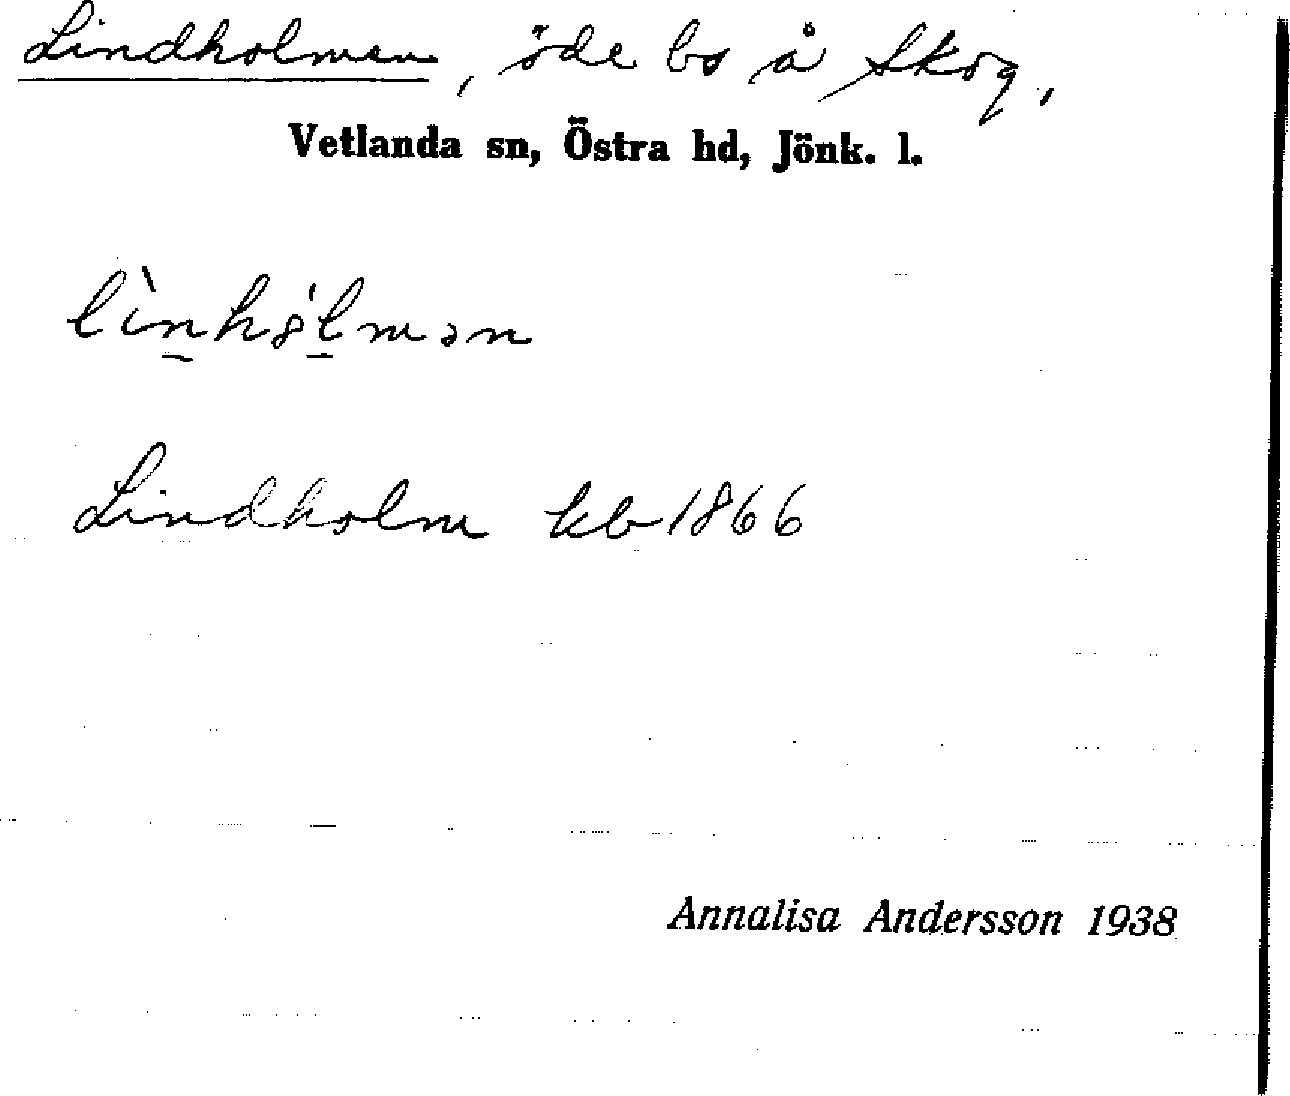 Lindholmen, öde bs å Skog,
Vetlanda sn, Östra hd, Jönk. l.
lìn̠hól̠mən
Lindholm kb 1866
Annalisa Andersson 1938